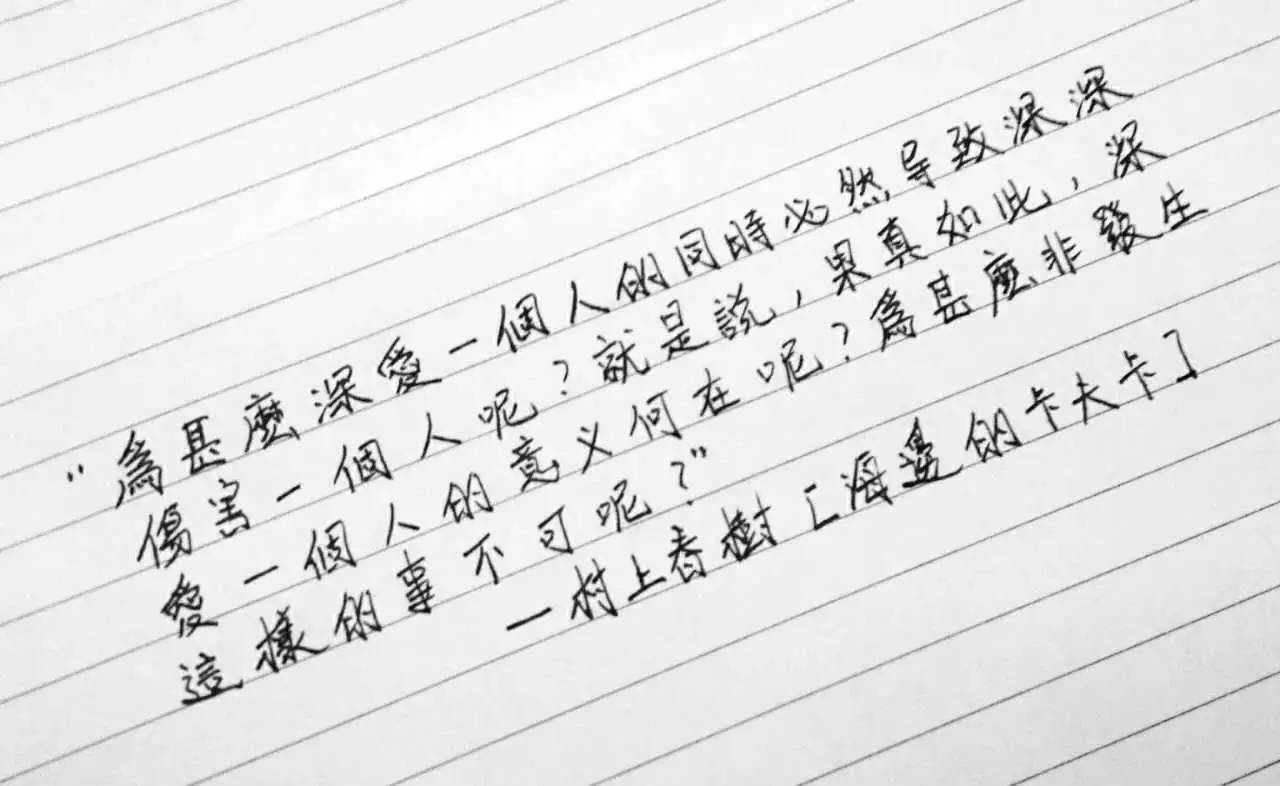 "為甚麼深愛一個人的同時必然导致深深
傷害一個人呢？就是說，果真如此，深
愛一個人的意义何在呢？為甚麼非發生
這樣的事不可呢？"
—村上春樹「海邊的卡夫卡」